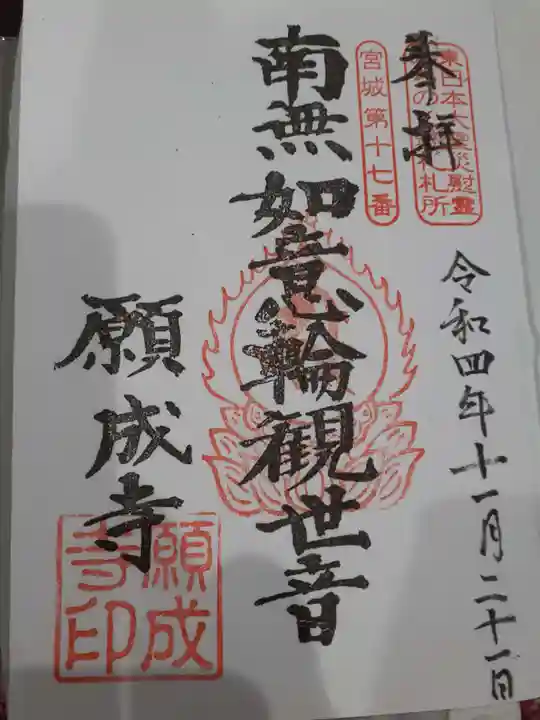 奉拝
東日本大震災慰霊
の 札所
宮城第十七番
令和四年十一月二十一日
南無如意輪観世音
願成寺
願成
寺印